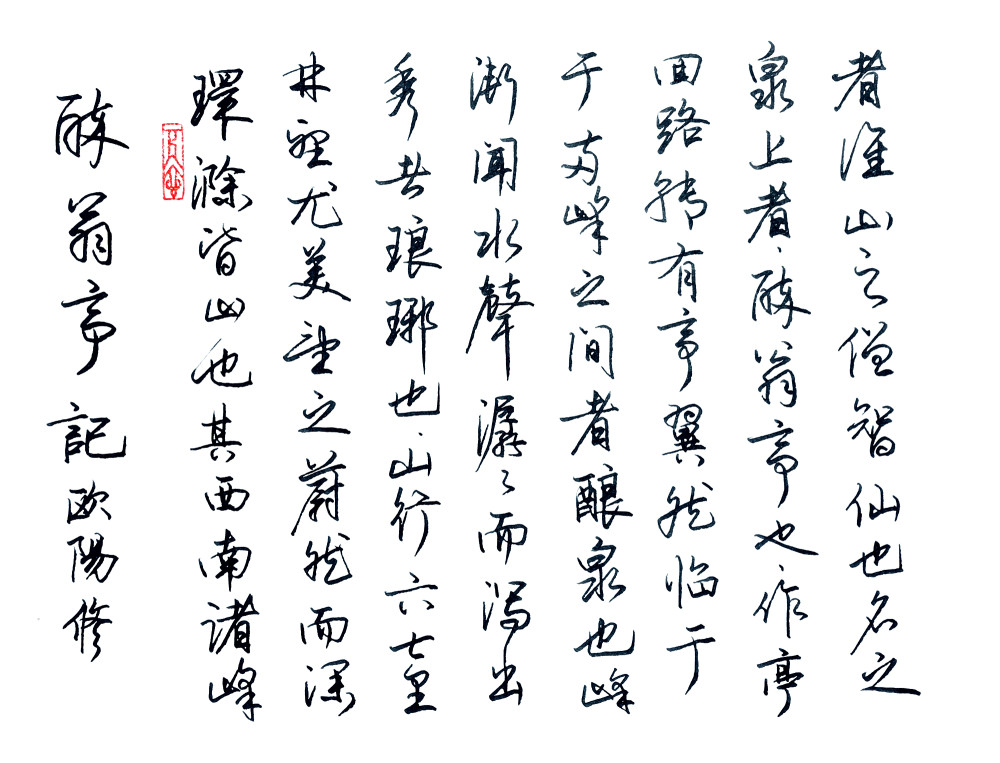 醉翁亭記 欧陽修
環滁皆山也其西南諸峰
林壑尤美望之蔚然而深
秀者琅琊也山行六七里
渐闻水聲潺々而瀉出
于两峰之间者酿泉也峰
回路转有亭翼然临于
泉上者醉翁亭也作亭
者谁山之僧智仙也名之